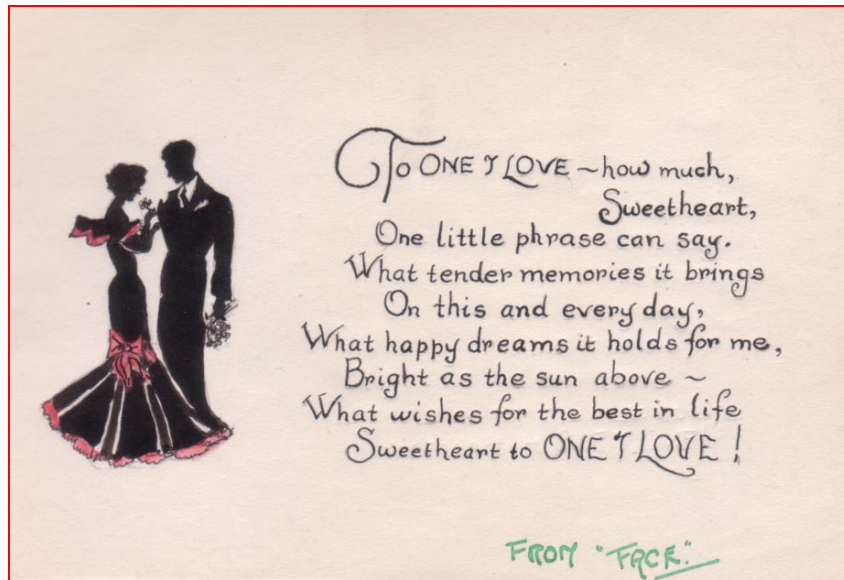 To ONE I LOVE ~ how much,
Sweetheart,
One little phrase can say.
What tender memories it brings
On this and every day,
What happy dreams it holds for me,
Bright as the sun above ~
What wishes for the best in life
Sweetheart to ONE I LOVE !
FROM "FACE."